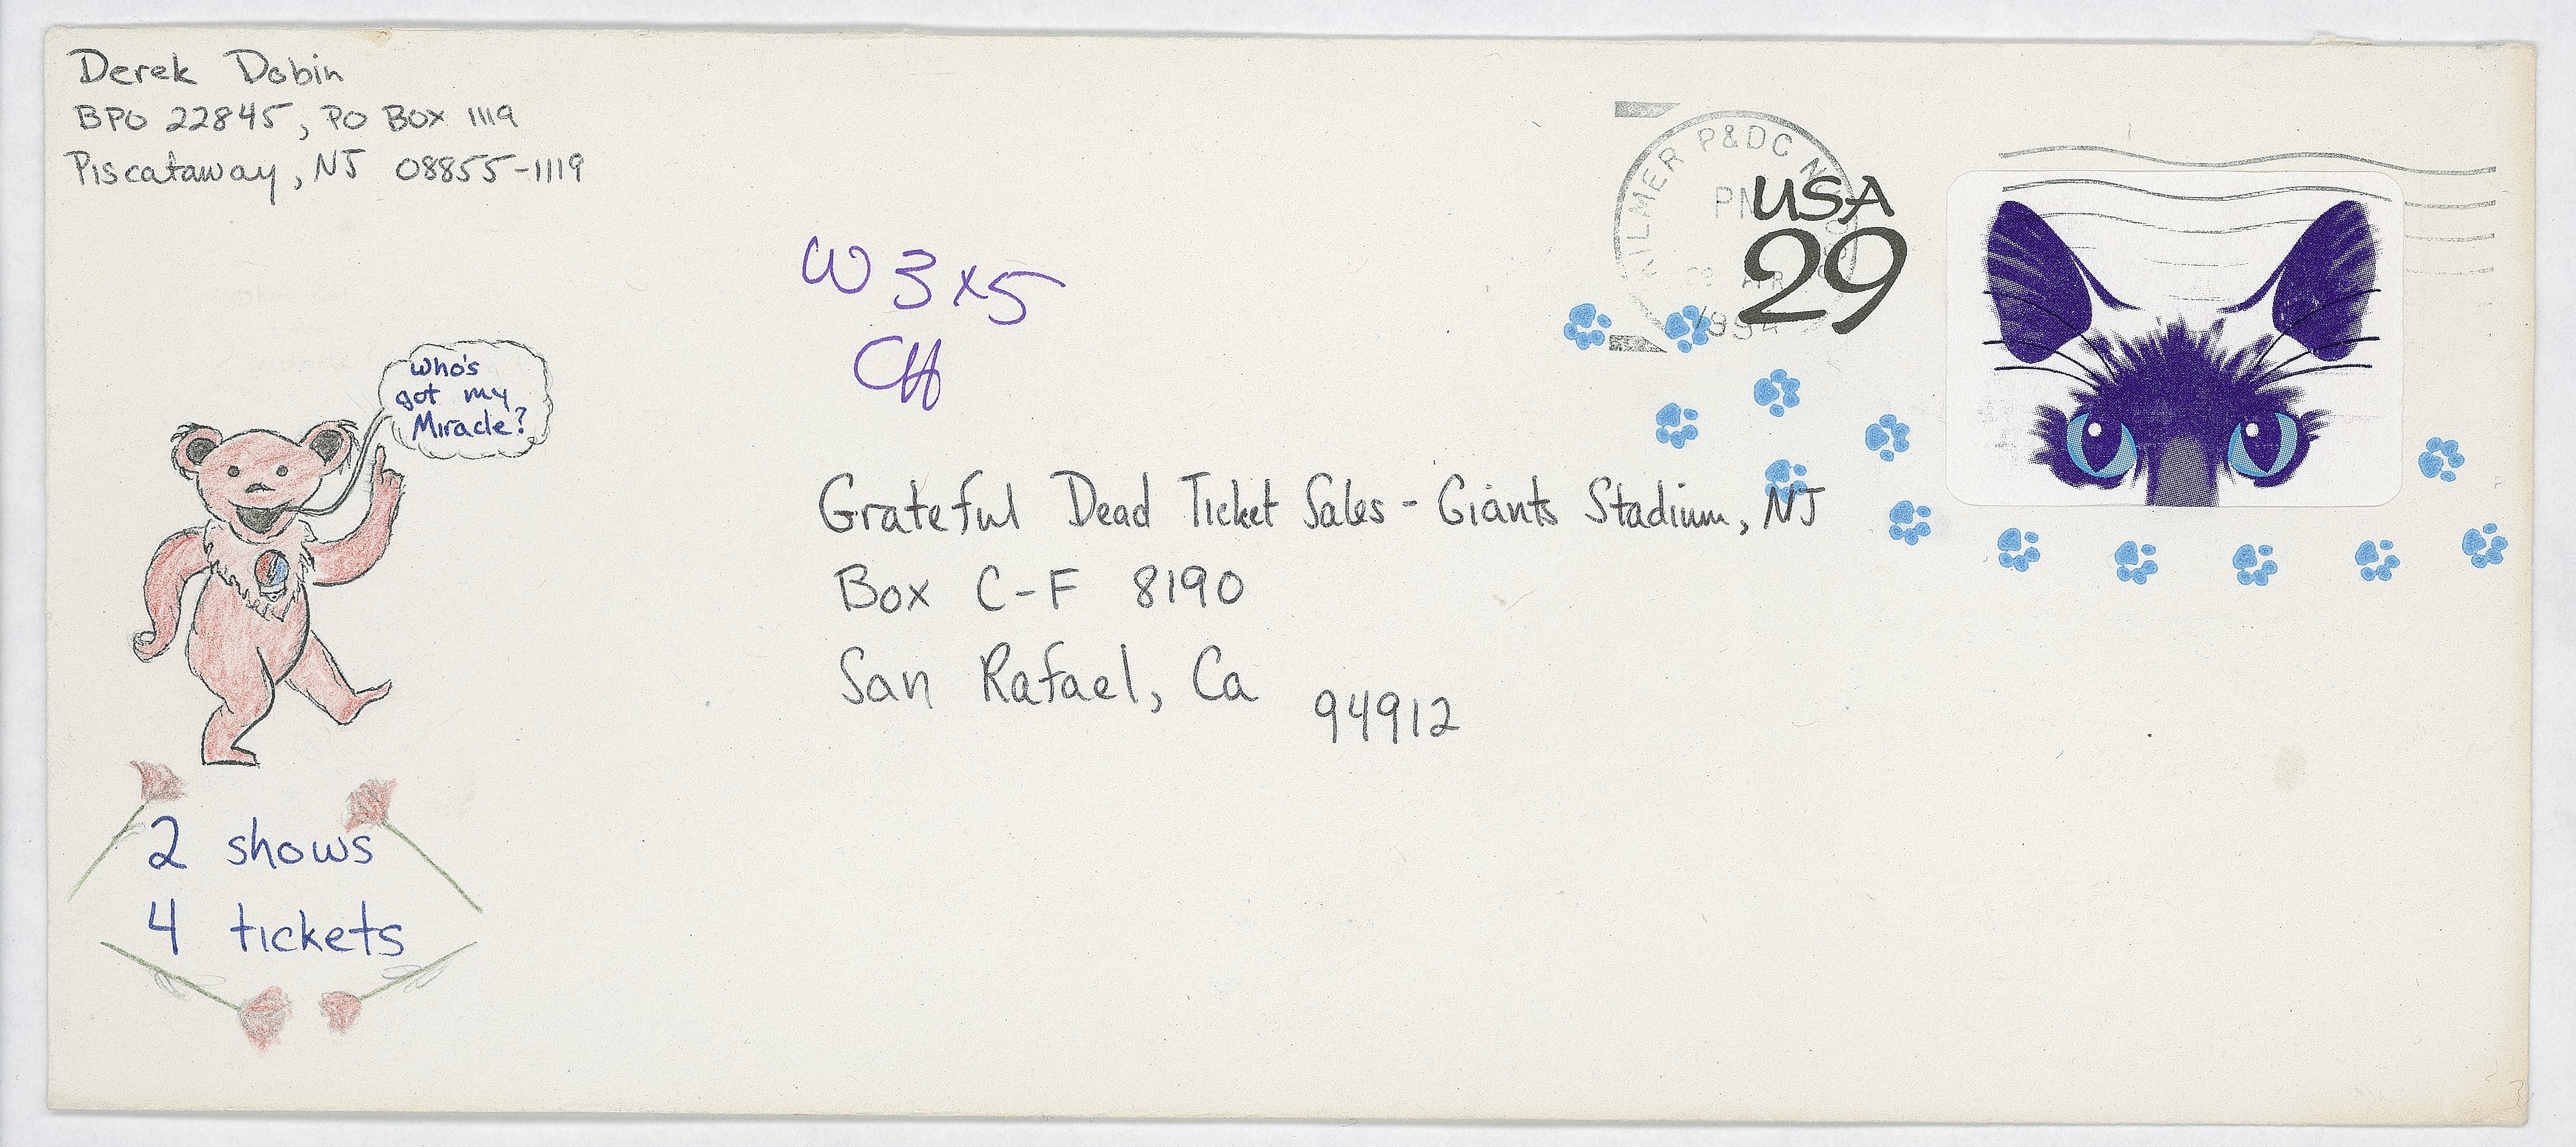 Derek Dobin
BPO 22845, PO BOX 1119
Piscataway, NJ 08855-1119
KILMER P&DC NJ
PM
1994
USA
29
W 3x5
CH
Who's
got my
Miracle?
Grateful Dead Ticket Sales - Giants Stadium, NJ
Box C-F 8190
San Rafael, Ca 94912
2 shows
4 tickets